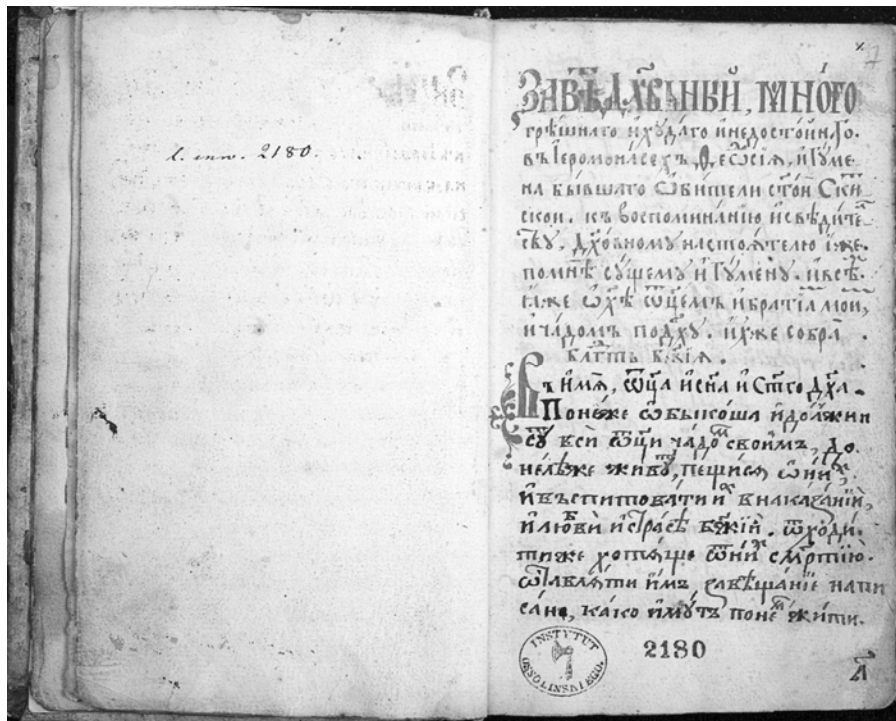 l. inw. 2180.
ЗАВѢ́ Дх҃ѡ́вный, мно́го
грѣшнаго и҆ худа́го и҆ недосто́йнаго.
въ І҆еромона́сехъ Ѳеѡ҆до́сїѧ, и҆гꙋме
на бы́вшаго ѡ҆би́тели ст҃о́й Ски
ской. къ воспомина́нїю и҆ свѣди́те
ству, дх҃о́вному настоѧ́телю и҆́же
по мнѣ̀ су́щему и҆гу́мену. и҆ всѣ̀
и҆̀же ѡ҆ хѣ̀ ѿц҃емъ и҆ бра́тїамъ мои,
и҆ ча́домъ по дх҃у. и҆́хже собра̀
бл҃гть бж҃їѧ.
Въ и҆́мѧ, ѿц҃а и҆ сн҃а и҆ ст҃го дх҃а.
Поне́же ѡ҆быко́ша и҆ до́лжни
сꙋ́ всѝ ѿц҃и ча́домъ свои́мъ, до
не́лѣже живу́, пещи́сѧ ѡ҆ ни́х
и҆ въспитова́ти и҆х в наказа́нїи,
и҆ любвѝ и҆ стра́сѣ бж҃їй. ѿходи́
ти же хотѧ́ще ѿ ни́х сме́ртїю.
ѡ҆ставлѧ́ти и҆̀мъ завѣща́нїе напи
са́но, ка́ко и҆́мутъ по не́м жи́ти.
INSTYTUT
OSSOLIŃSKIEGO.
2180